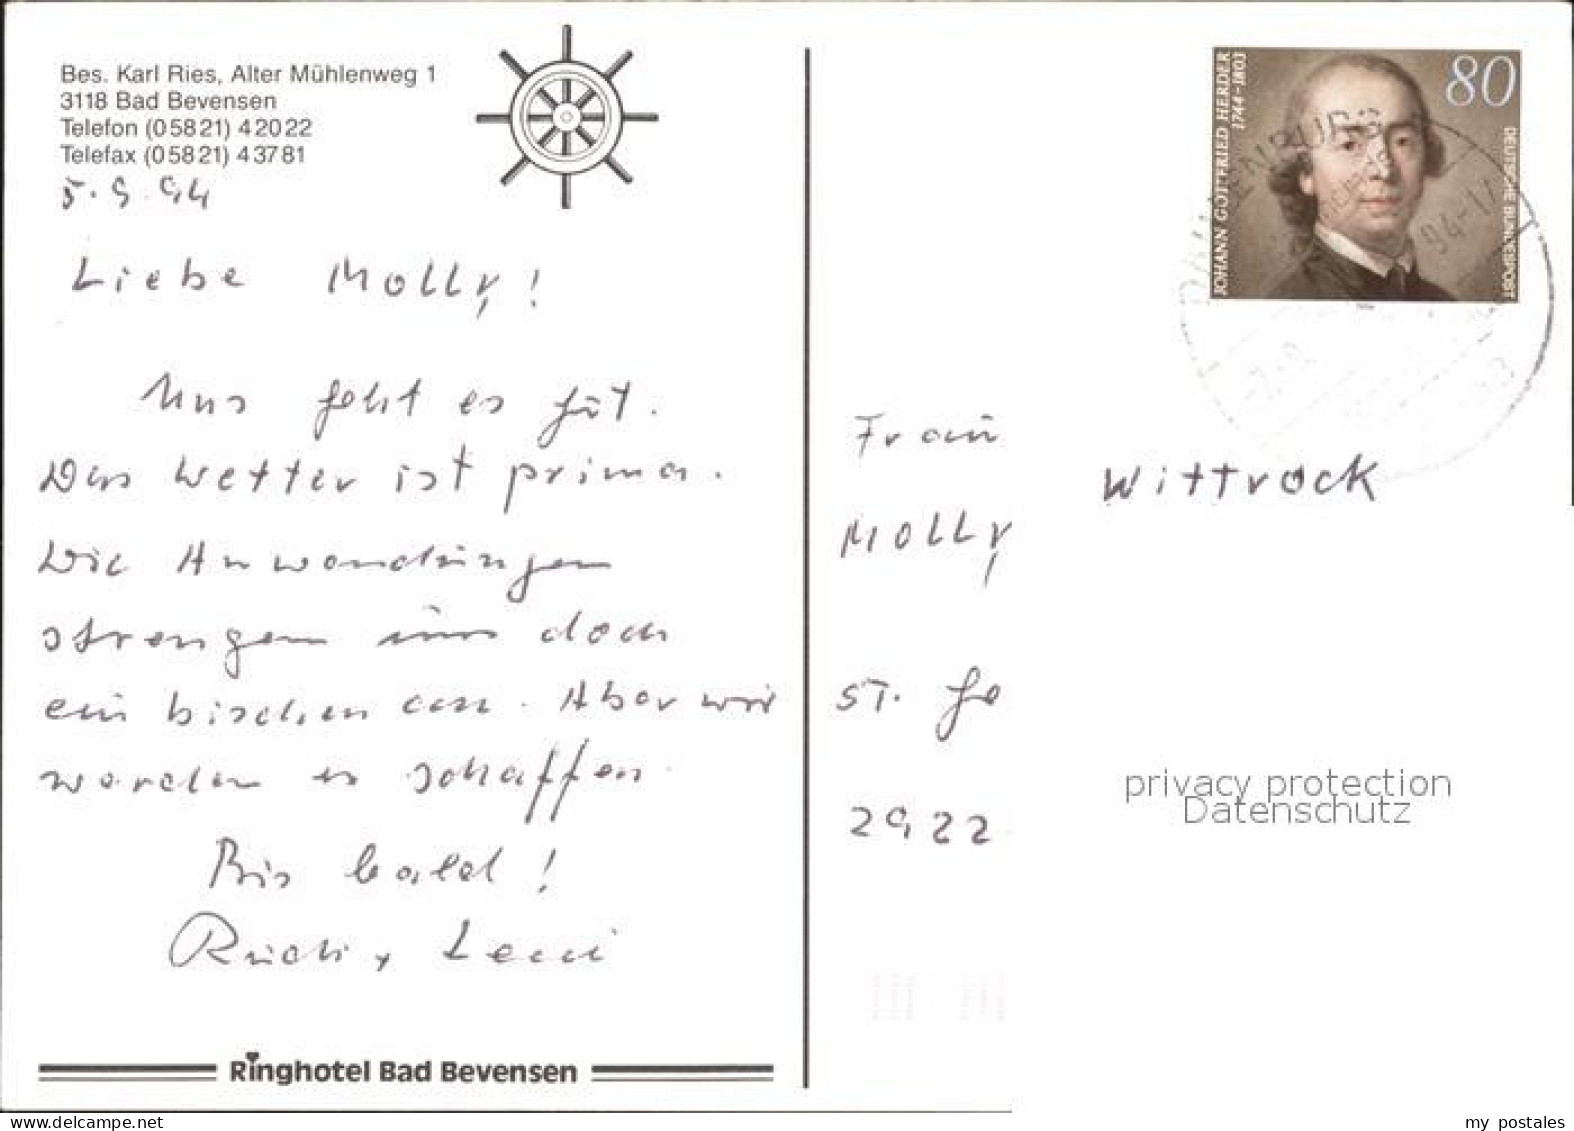 Bes. Karl Ries, Alter Mühlenweg 1
3118 Bad Bevensen
Telefon (0 58 21) 4 20 22
Telefax (0 58 21) 4 37 81
5.9.94
Liebe Molly!
Uns geht es gut.
Das Wetter ist prima.
Die Anwendungen
strengen uns doch
ein bischen an. Aber wir
werden es schaffen.
Bis bald!
Rudi + Leni
Ringhotel Bad Bevensen
80
JOHANN GOTTFRIED HERDER
1744-1803
DEUTSCHE BUNDESPOST
94-17
Frau
Molly Wittrock
ST. Ge
2922
privacy protection
Datenschutz
www.delcampe.net
my postales